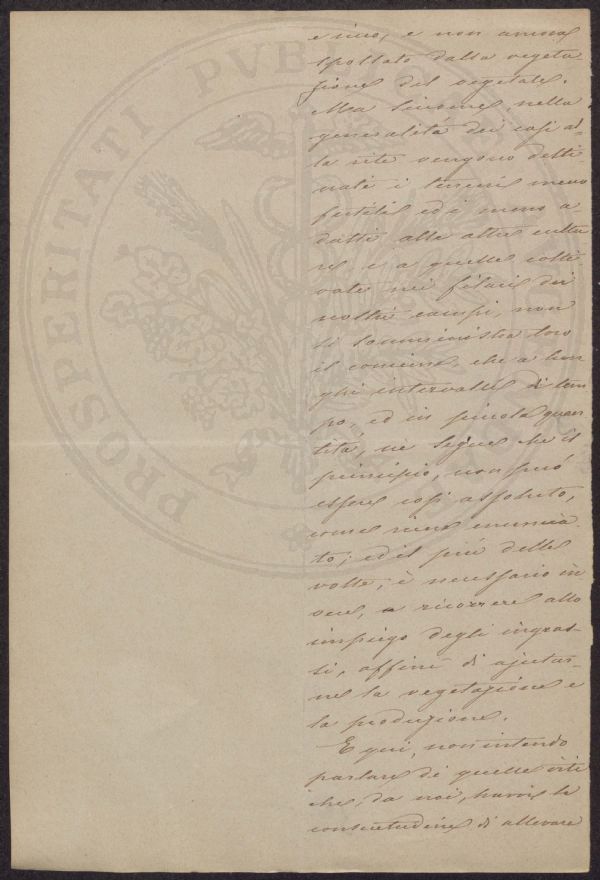 e vino, e non ancora
spossato dalla vegeta
zione del vegetale.
Ma siccome nella
generalità dei casi al
la vite vengono desti
nati i terreni meno
fertili ed i meno a-
datti alle altre cultu
re, e a quelle colti-
vate nei filari dei
nostri campi, non
si somministra loro
il concime, che a lun
ghi intervalli di tem
po, ed in piccola quan
tità, ne segue che il
principio, non può
essere così assoluto,
come viene enuncia
to; ed il più delle
volte, è necessario in
vece, a ricorrere allo
impiego degli ingras-
si, affine di ajutar-
ne la vegetazione e
la produzione.
E qui, non intendo
parlare di quelle viti
che, da noi, havvi la
consuetudine di allevare
PROSPERITATI PVBL